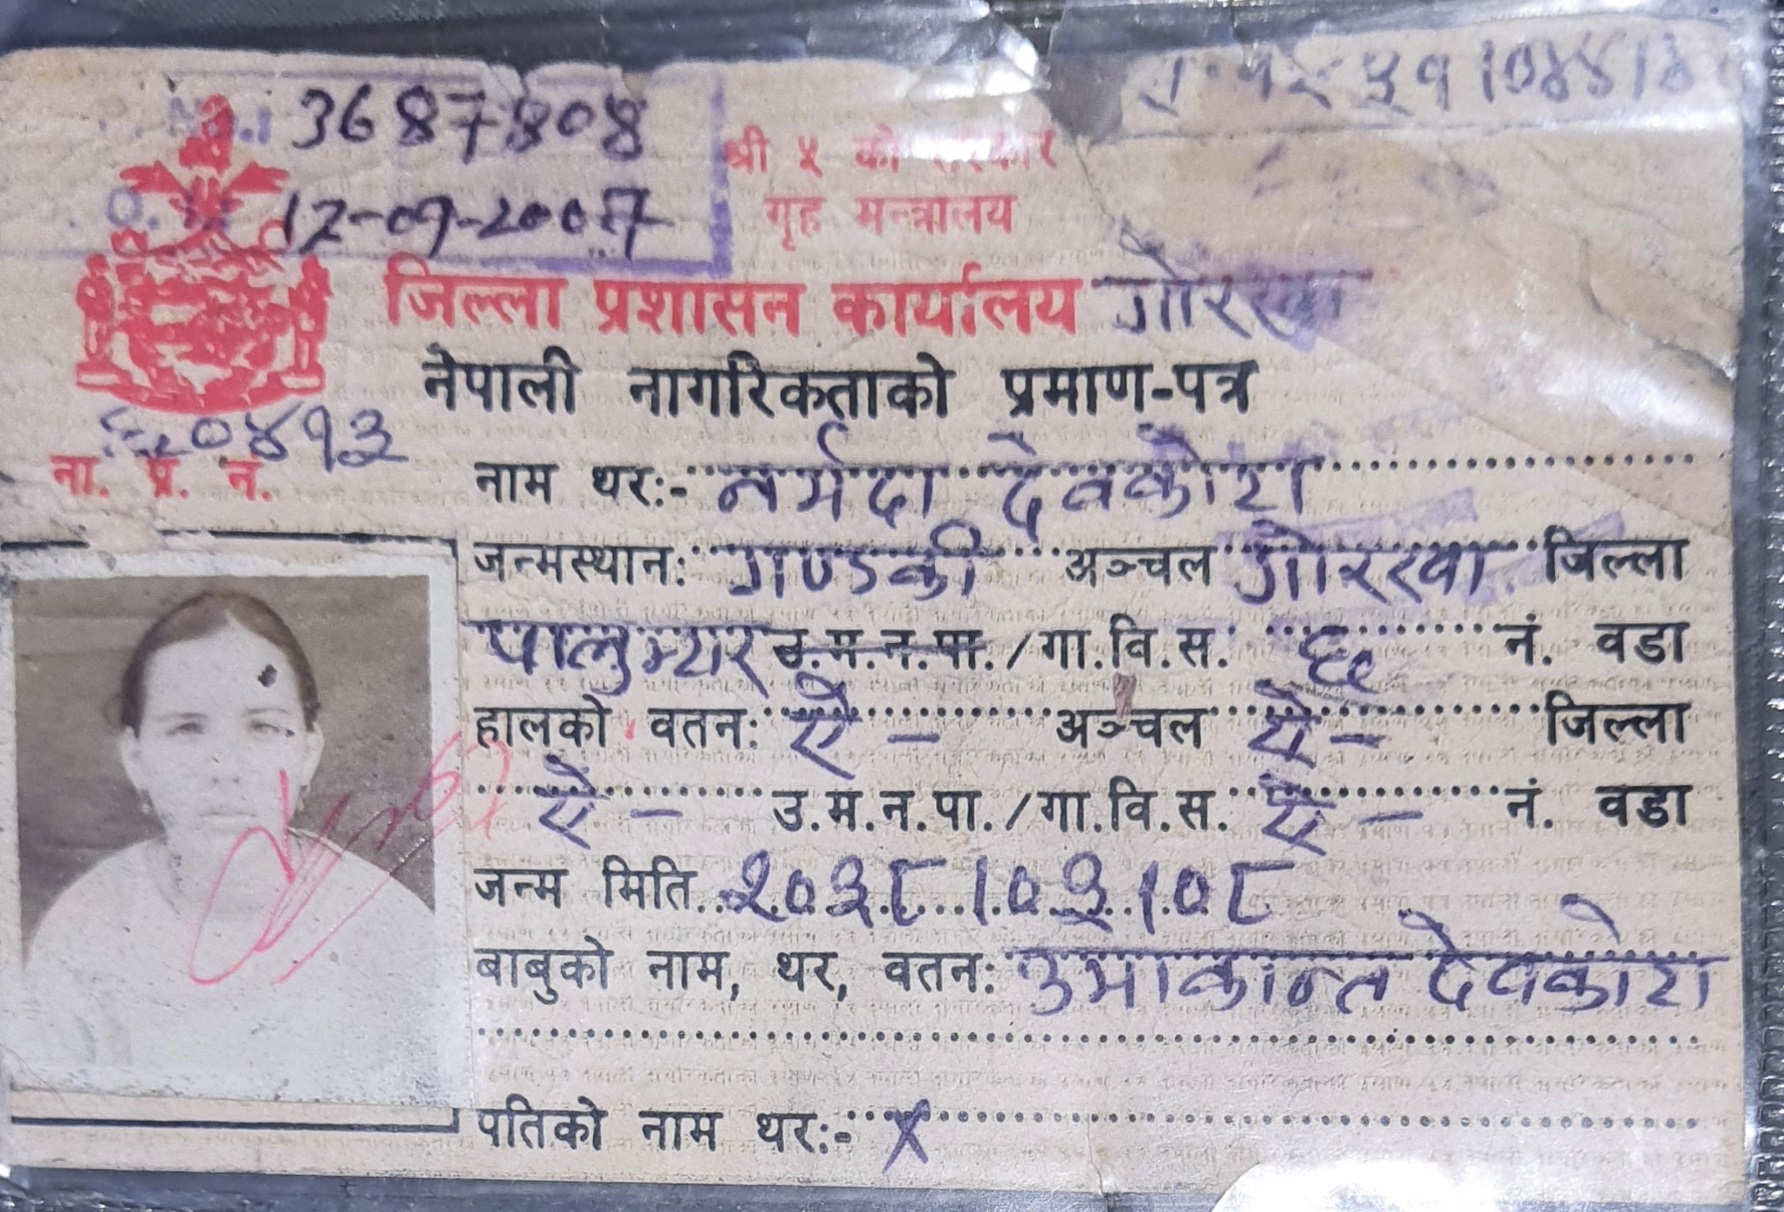 3687808
12-09-2007
श्री ५ को सरकार
गृह मन्त्रालय
जिल्ला प्रशासन कार्यालय गोरखा
नेपाली नागरिकताको प्रमाण-पत्र
ना. प्र. न.
नाम थर:- नर्मदा देवकोटा
जन्मस्थान: गण्डकी अञ्चल गोरखा जिल्ला
उ.म.न.पा./गा.वि.स. ६ नं. वडा
हालको वतन: ऐ - अञ्चल ऐ - जिल्ला
ऐ - उ.म.न.पा./गा.वि.स. ऐ - नं. वडा
जन्म मिति २०३८।०३।०८
बाबुको नाम, थर, वतन: उमाकान्त देवकोटा
पतिको नाम थर:- X